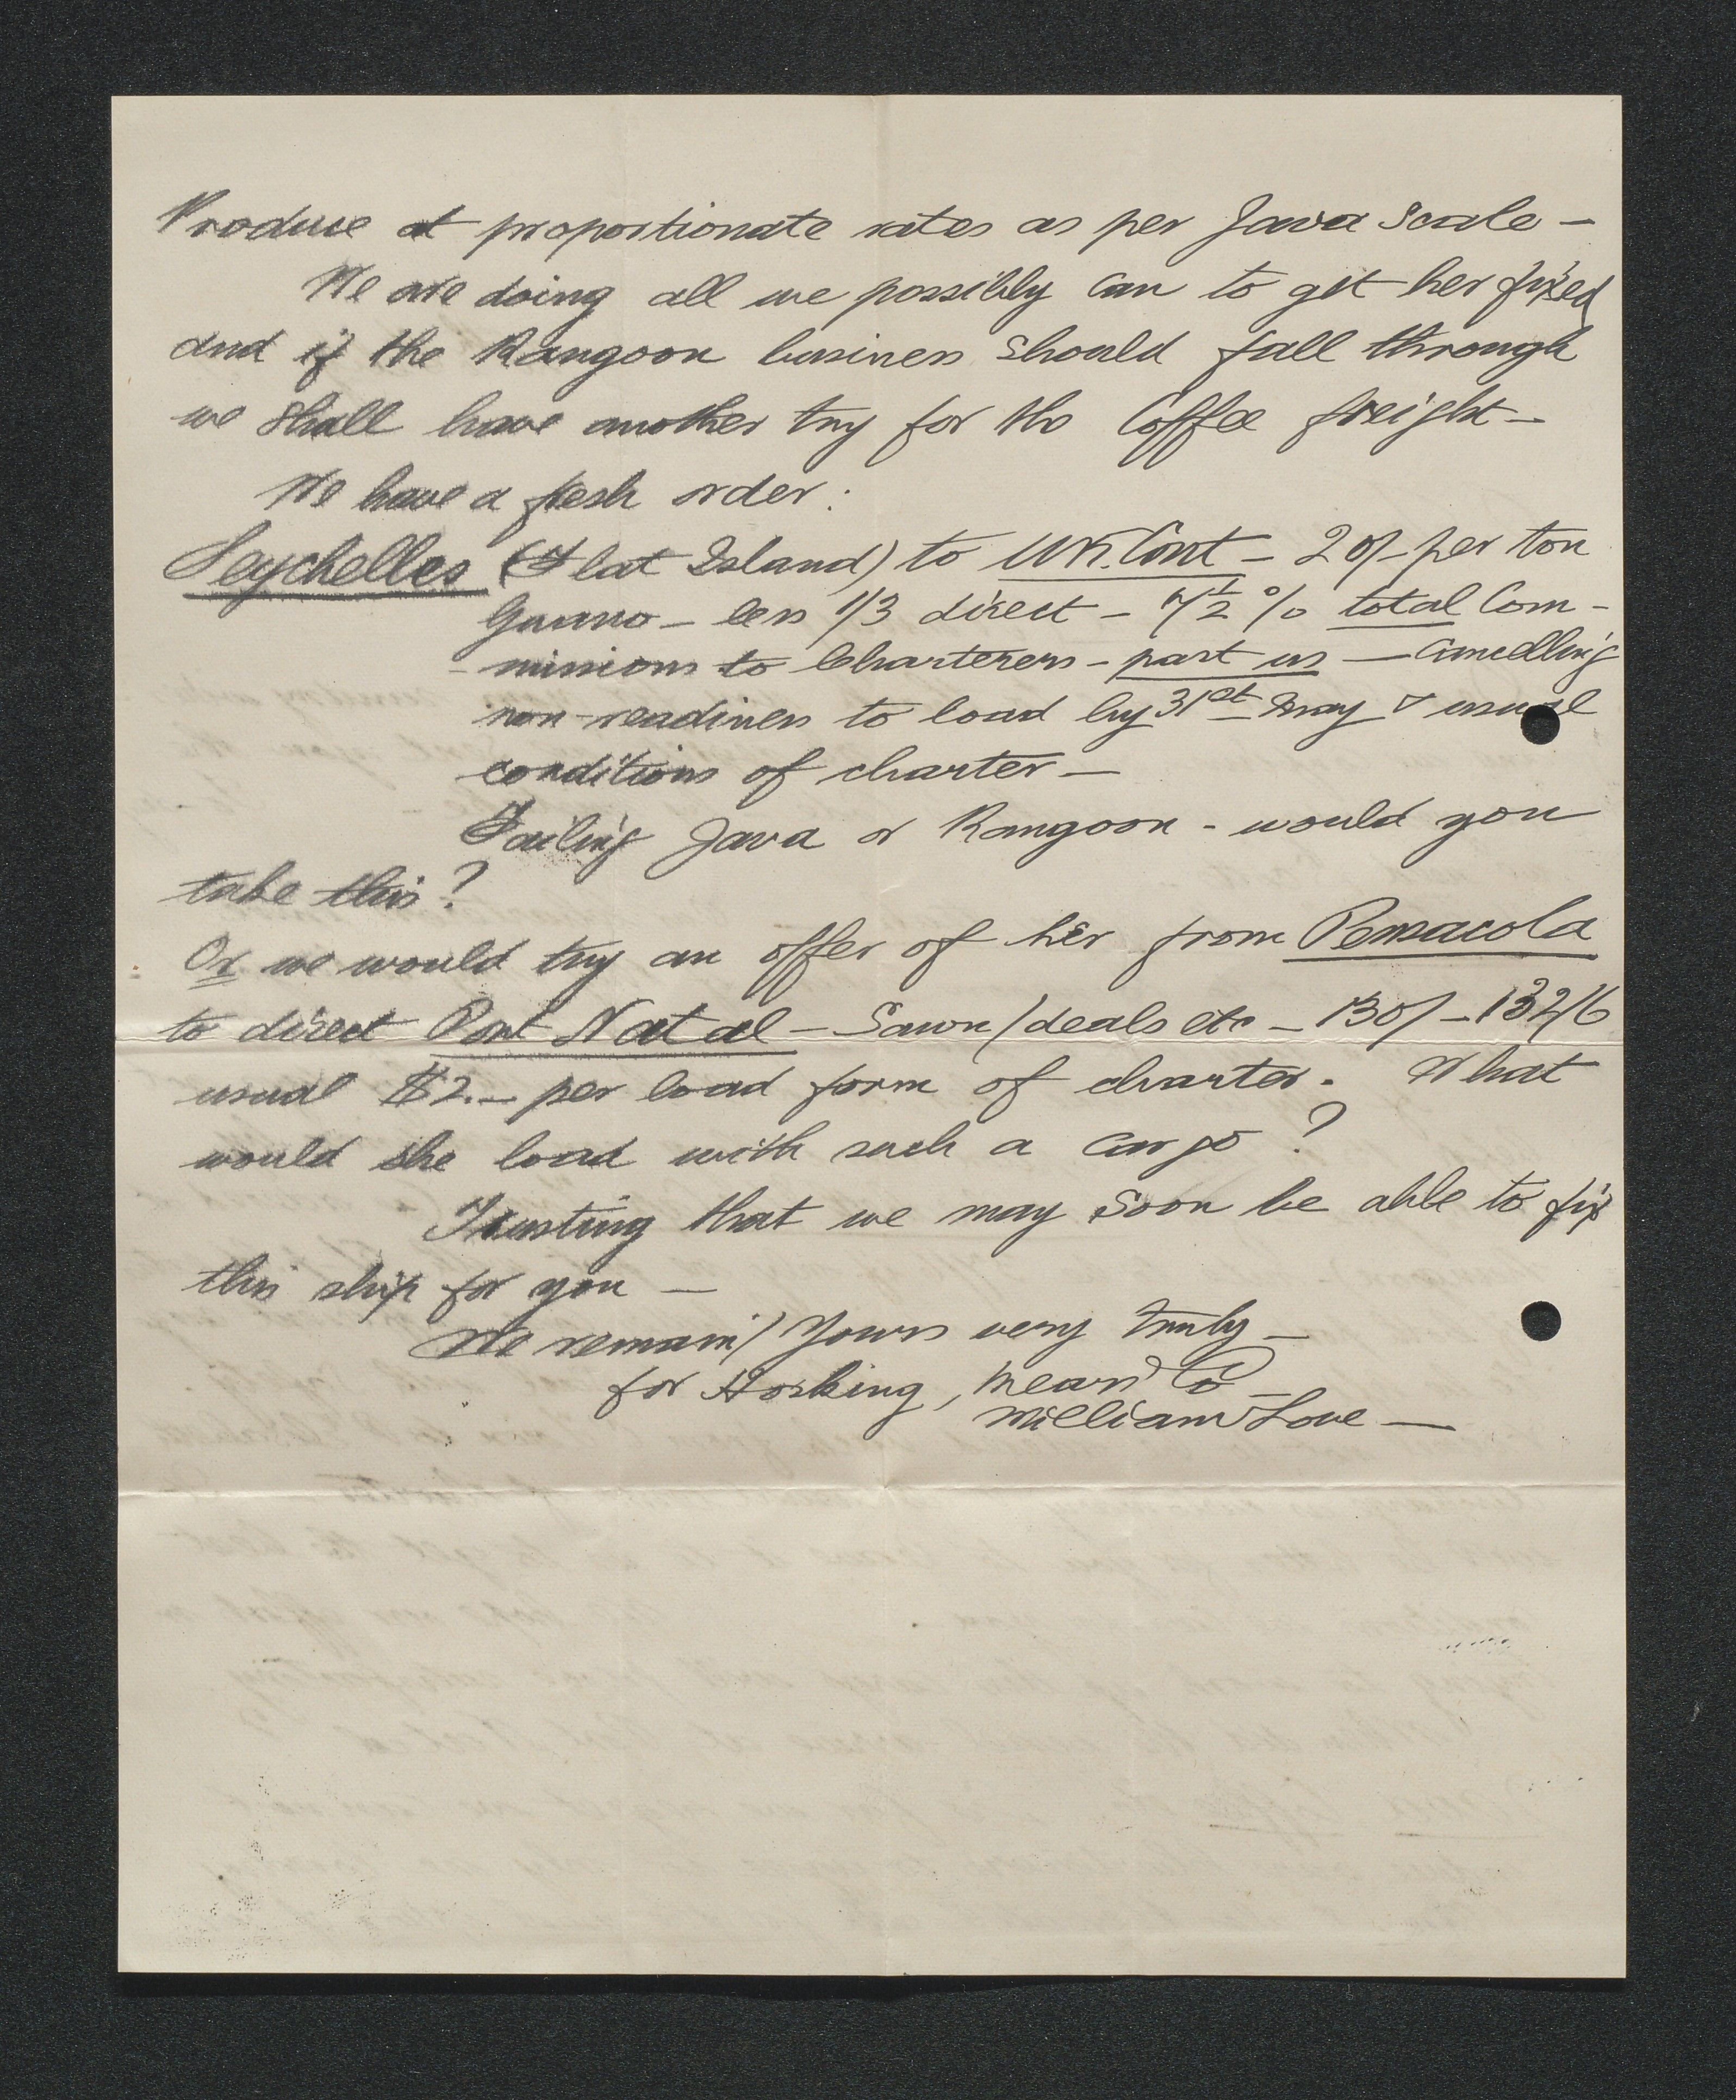 Produce at proportionate rates as per Java Scale —
We are doing all we possibly can to get her fixed
and if the Rangoon business should fall through
we shall have another try for the Coffee freight —
We have a fresh order:
Seychelles (Flat Island) to UK. Cont — 20/- per ton
Guano — less 1/3 direct — 7½ % total Com-
-missions to Charterers — part us — Cancelling
non-readiness to load by 31st May & usual
conditions of charter —
Failing Java or Rangoon - would you
take this?
Or we would try an offer of her from Pensacola
to direct Port Natal — Sawn/deals etc — 130/ — 132/6
usual $2.— per load form of charter. What
would she load with such a cargo?
Trusting that we may soon be able to fix
this ship for you —
We remain/ Yours very truly —
for Hosking, Co —
William Love —